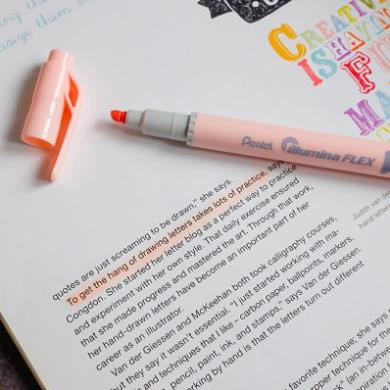 CREATIVE
ISHAVING
FU
MA
Pentel illumina FLEX
quotes are just screaming to be drawn," she says.
To get the hang of drawing letters takes lots of practice, says
Congdon. She started her letter blog as a perfect way to practice
and experiment with her own style. That daily exercise ensured
that she made progress and mastered the art. Through that work,
her hand-drawn letters have become an important part of her
career as an illustrator.
Van der Giessen and McKeehan both took calligraphy courses,
but they say it wasn't essential. "I just started working with ma-
and techniques that I like – carbon paper, ballpoints, markers,
pencil, paint, ink, and stamps," says Van der Giessen.
working by hand is that the letters turn out different.
favorite technique; she says
paper technique for the